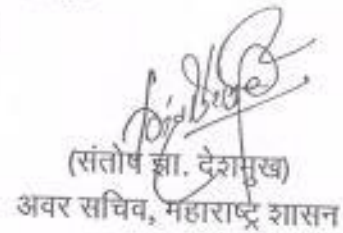 (संतोष ज्ञा. देशमुख)
अवर सचिव, महाराष्ट्र शासन